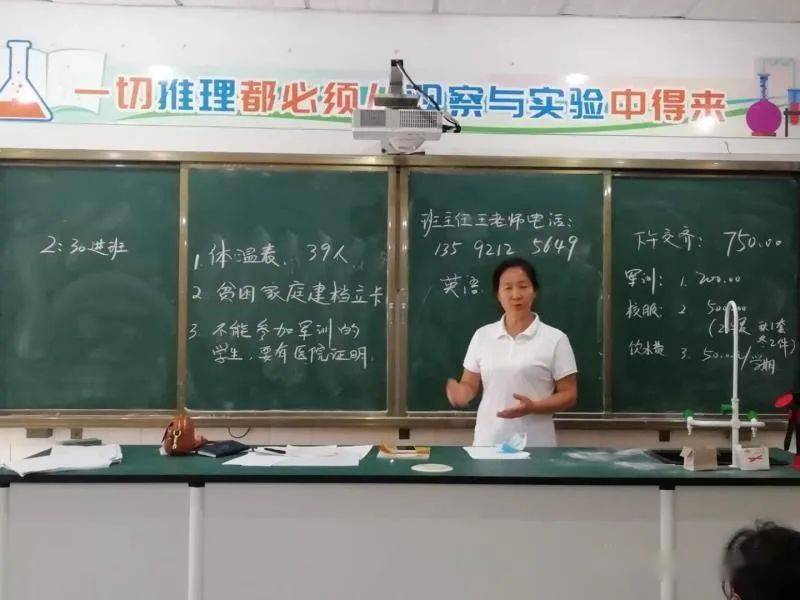 一切推理都必须从观察与实验中得来
2:30进班
1. 体温表、39人
2. 贫困家庭建档立卡
3. 不能参加军训的
学生,要有医院证明.
班主任王老师电话:
135 9212 5649
英语
下午交齐: 750.00
军训: 1. 200.00
校服: 2 500.00
共2件)
饮水费 3. 50.00/学期